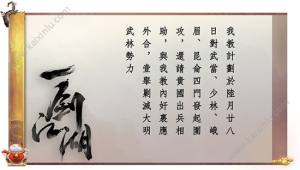 我教計劃於陸月廿八
日對武當、少林、峨
眉、昆侖四門發起圍
攻，還請貴國出兵相
助，與我教內奸裏應
外合，壹舉剿滅大明
武林勢力